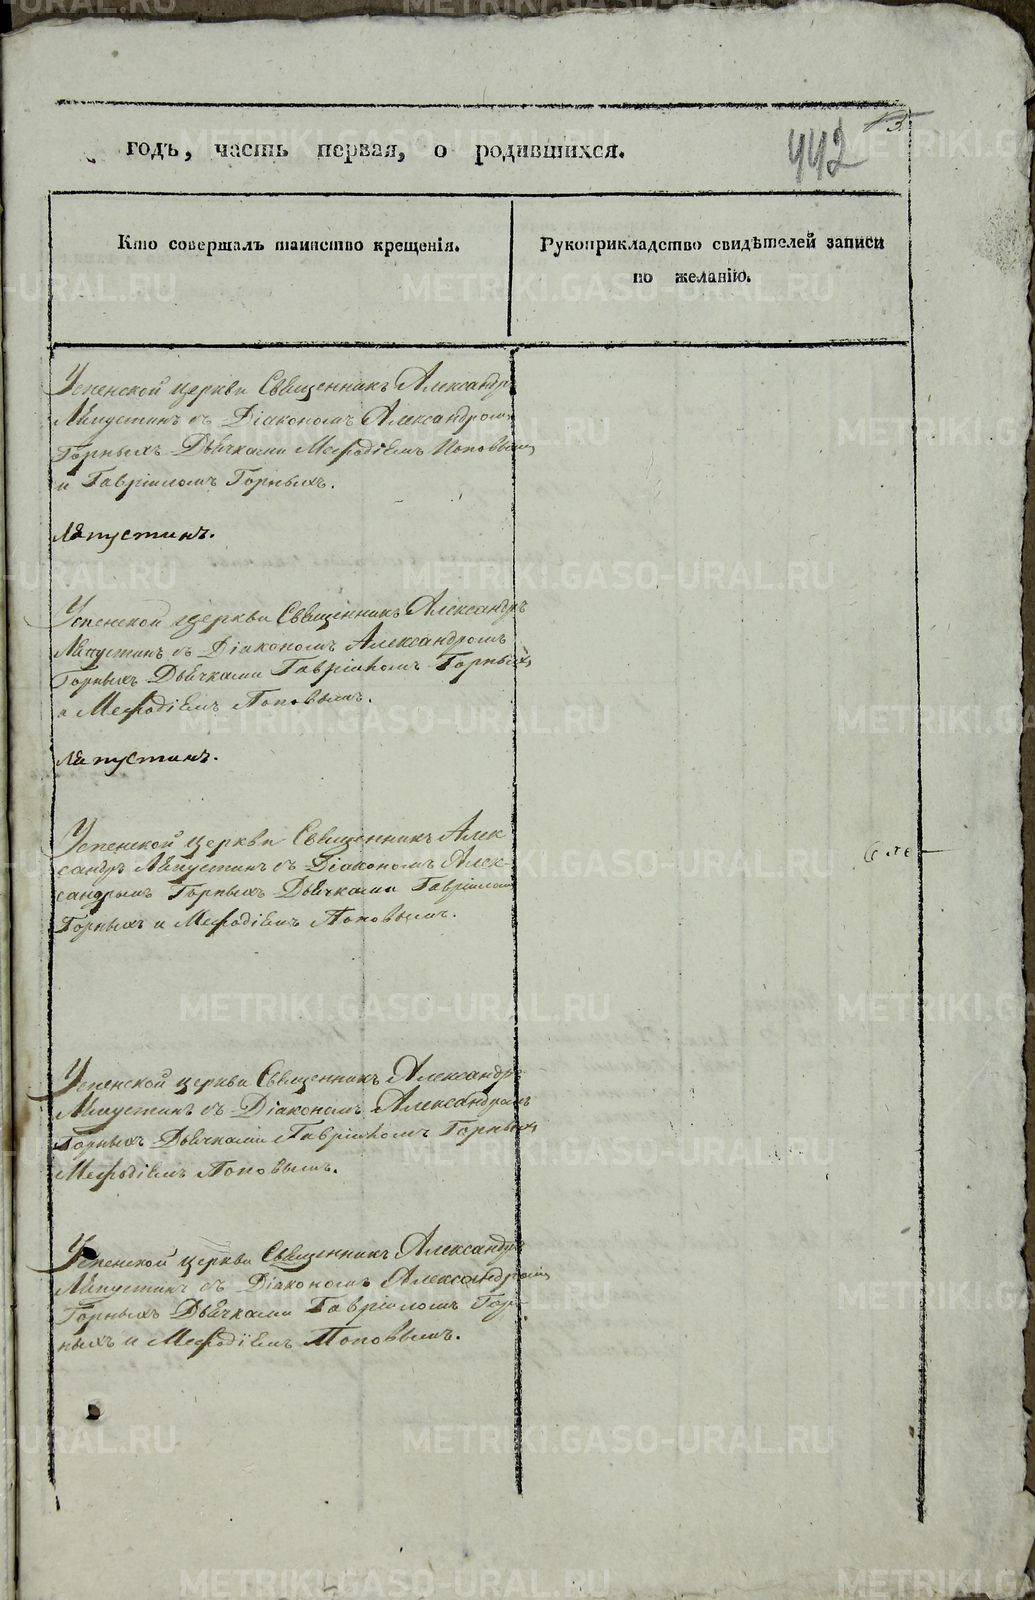 годъ, часть первая, о родившихся.
442
Кто совершалъ таинство крещенія.
Рукоприкладство свидѣтелей записи
по желанію.
Успенской церкви Священникъ Александръ
Ляпустинъ съ Діакономъ Александромъ
Горныхъ Дьячками Мефодіемъ Поповымъ
и Гавріиломъ Горныхъ.
Ляпустинъ.
Успенской церкви Священникъ Александръ
Ляпустинъ съ Діакономъ Александромъ
Горныхъ Дьячками Гавріиломъ Горныхъ
и Мефодіемъ Поповымъ.
Ляпустинъ.
Успенской церкви Священникъ Алек
сандръ Ляпустинъ съ Діакономъ Алек-
сандромъ Горныхъ Дьячками Гавріиломъ
Горныхъ и Мефодіемъ Поповымъ.
Успенской церкви Священникъ Александръ
Ляпустинъ съ Діакономъ Александромъ
Горныхъ Дьячками Гавріиломъ Горныхъ
Мефодіемъ Поповымъ.
Успенской церкви Священникъ Александръ
Ляпустинъ съ Діакономъ Александромъ
Горныхъ Дьячками Гавріиломъ Гор
ныхъ и Мефодіемъ Поповымъ.
METRIKI.GASO-URAL.RU